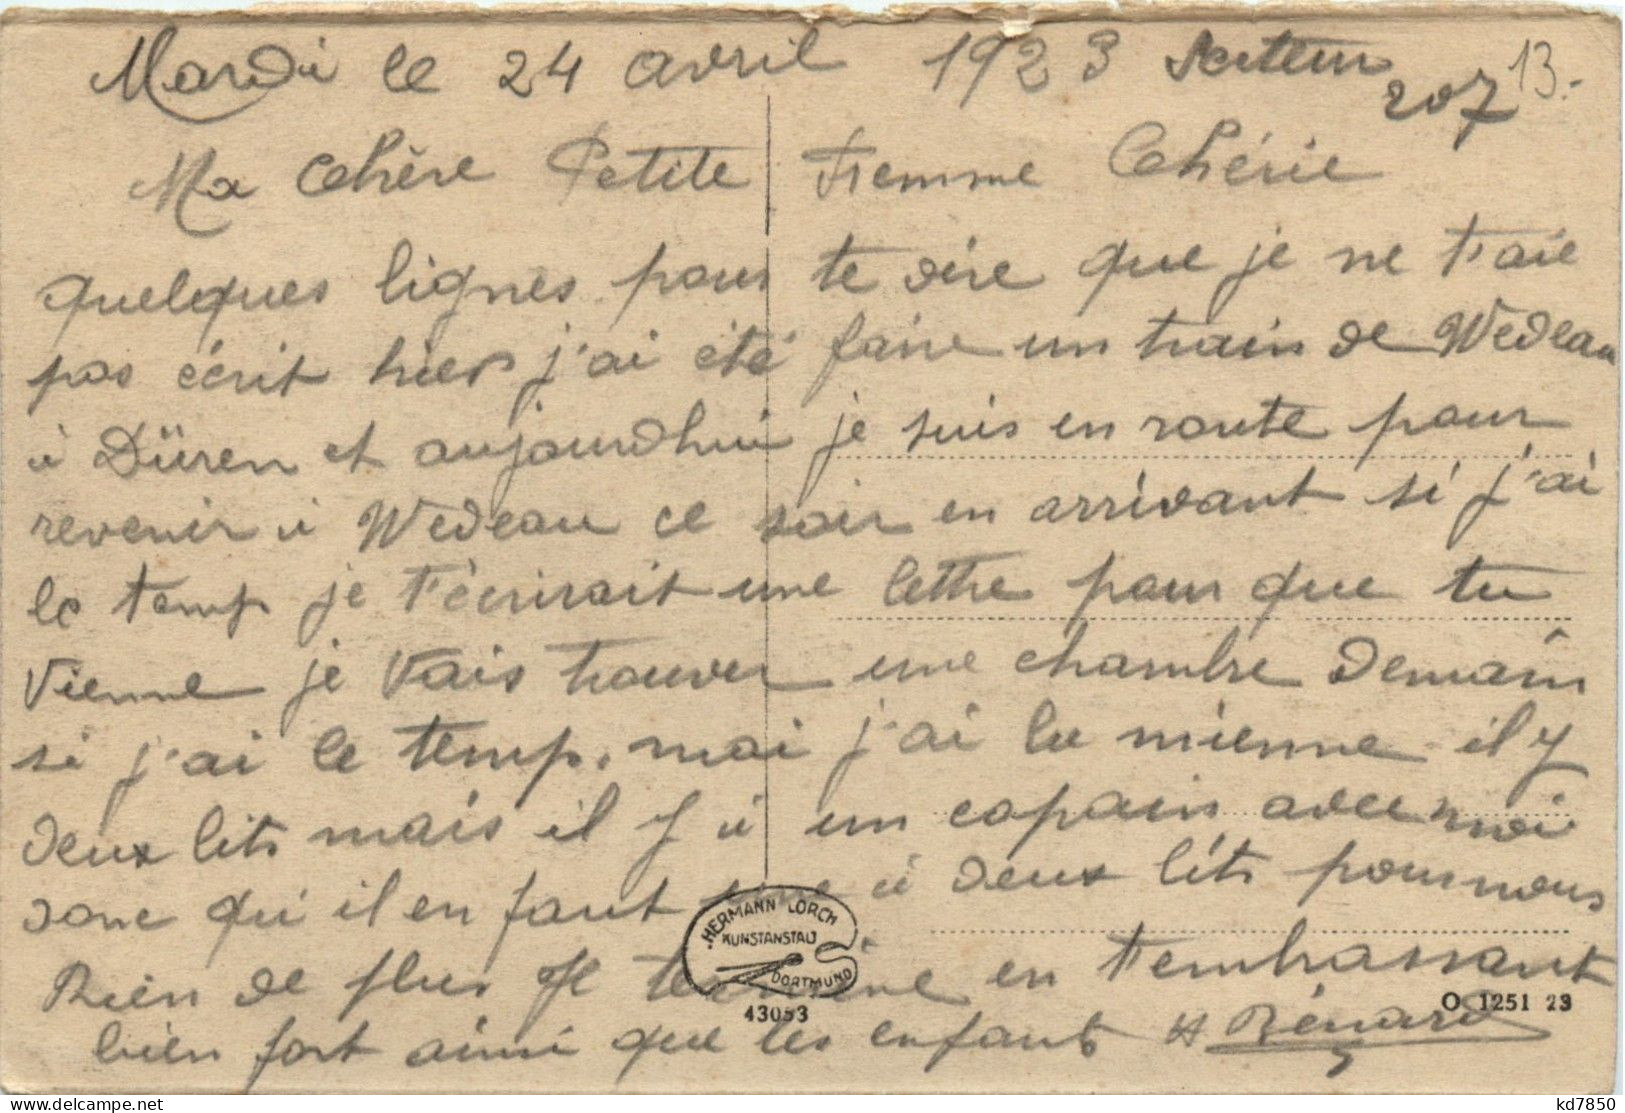 Mardi le 24 avril 1923 Secteur 207 13.-
Ma Chère Petite Femme Chérie
quelques lignes pour te dire que je ne t'aie
pas écrit hier j'ai été faire un train de Wedeau
à Düren et aujourdhui je suis en route pour
revenir à Wedeau ce soir en arrivant si j'ai
le temp je t'écrirait une lettre pour que tu
vienne je vais trouver une chambre demain
si j'ai le temp. moi j'ai la mienne il y
deux lits mais il y à un copain avec moi
donc qu'il en faut une à deux lits pour nous
Rien de plus Je termine en t'embrassant
bien fort ainsi que les enfants H Bénard
HERMANN LORCH
KUNSTANSTALT
DORTMUND
43053
O 1251 23
kd7850